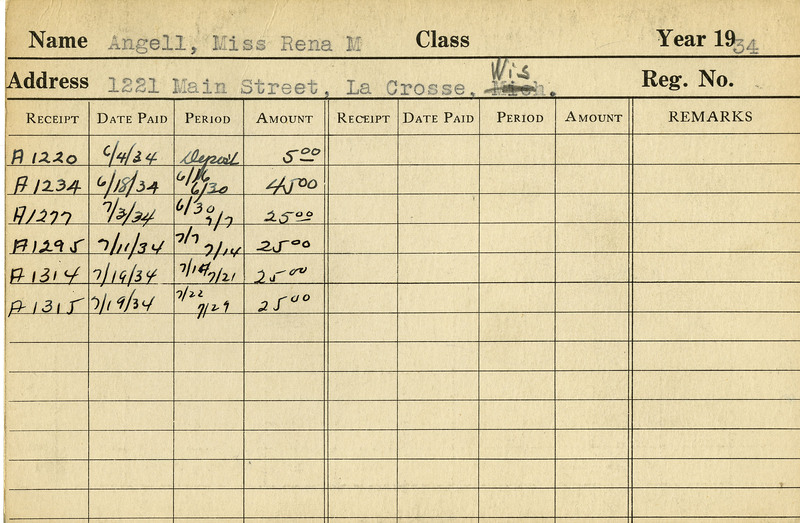 Name Angell, Miss Rena M Class Year 1934
Address 1221 Main Street, La Crosse, Mich. Wis Reg. No.
RECEIPT DATE PAID PERIOD AMOUNT RECEIPT DATE PAID PERIOD AMOUNT REMARKS
A1220 6/4/34 Deposit 5.00
A1234 6/18/34 6/16 6/30 45.00
A1277 7/3/34 6/30 7/7 25.00
A1295 7/11/34 7/7 7/14 25.00
A1314 7/19/34 7/14 7/21 25.00
A1315 7/19/34 7/22 7/29 25.00